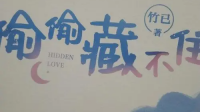 偷偷藏不住
HIDDEN
LOVE
竹已
著